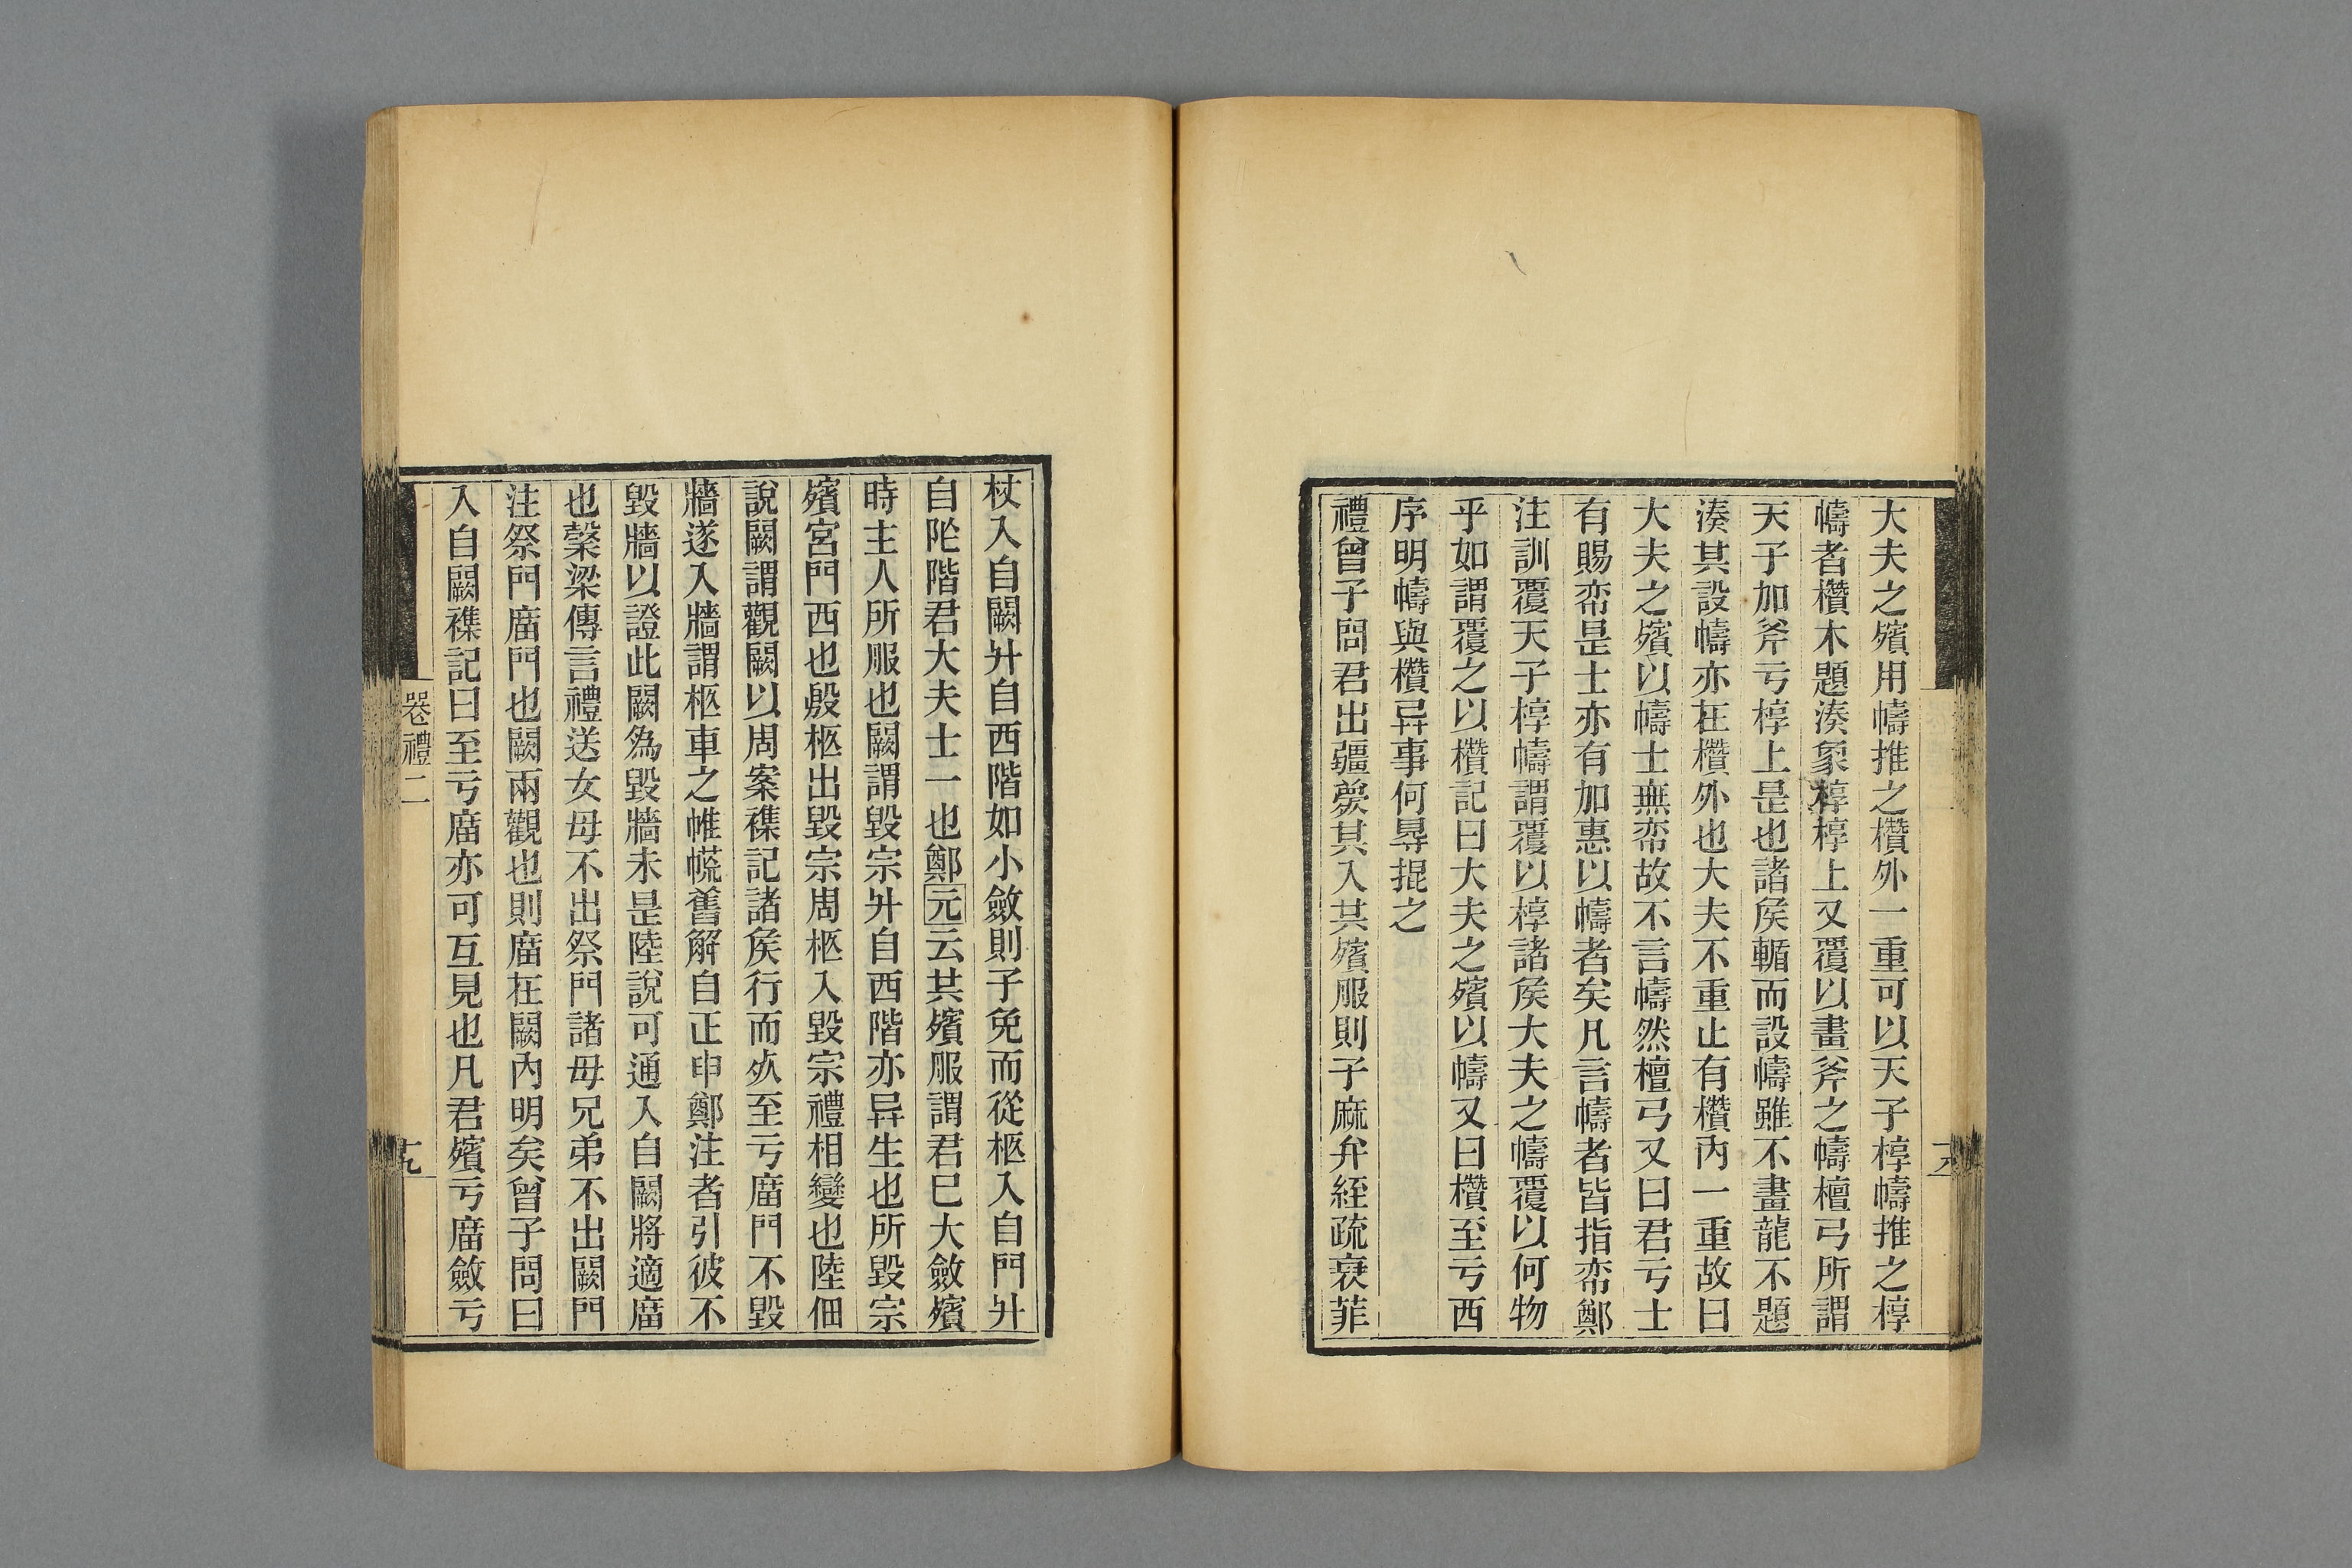 大夫之殯用幬推之欑外一重可以天子椁幬推之椁
幬者欑木題湊象椁椁上又覆以畫斧之幬檀弓所謂
天子加斧亏椁上是也諸矦輴而設幬雖不畫龍不題
湊其設幬亦在欑外也大夫不重止有欑內一重故曰
大夫之殯以幬士無帟故不言幬然檀弓又曰君亏士
有賜帟是士亦有加惠以幬者矣凡言幬者皆指帟鄭
注訓覆天子椁幬謂覆以椁諸矦大夫之幬覆以何物
乎如謂覆之以欑記曰大夫之殯以幬又曰欑至亏西
序明幬與欑异事何㝵掍之
禮曾子問君出疆薨其入其殯服則子麻弁絰疏衰菲
十八
杖入自闕升自西階如小斂則子免而從柩入自門升
自阼階君大夫士一也鄭元云共殯服謂君已大斂殯
時主人所服也闕謂毀宗升自西階亦异生也所毀宗
殯宮門西也殷柩出毀宗周柩入毀宗禮相變也陸佃
說闕謂觀闕以周案襍記諸矦行而𣦸至亏廟門不毀
牆遂入牆謂柩車之帷幌舊解自正申鄭注者引彼不
毀牆以證此闕為毀牆未是陸說可通入自闕將適廟
也榖梁傳言禮送女母不出祭門諸母兄弟不出闕門
注祭門廟門也闕兩觀也則廟在闕內明矣曾子問曰
入自闕襍記曰至亏廟亦可互見也凡君殯亏廟斂亏
卷禮二
十九